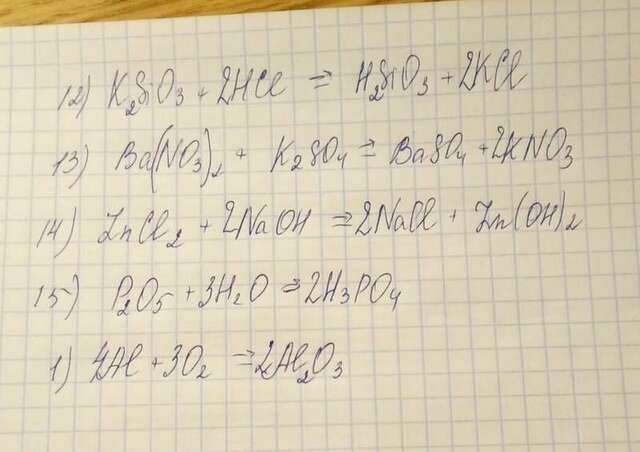 12) K₂SiO₃ + 2HCl = H₂SiO₃ + 2KCl
13) Ba(NO₃)₂ + K₂SO₄ = BaSO₄ + 2KNO₃
14) ZnCl₂ + 2NaOH = 2NaCl + Zn(OH)₂
15) P₂O₅ + 3H₂O = 2H₃PO₄
1) 4Al + 3O₂ = 2Al₂O₃